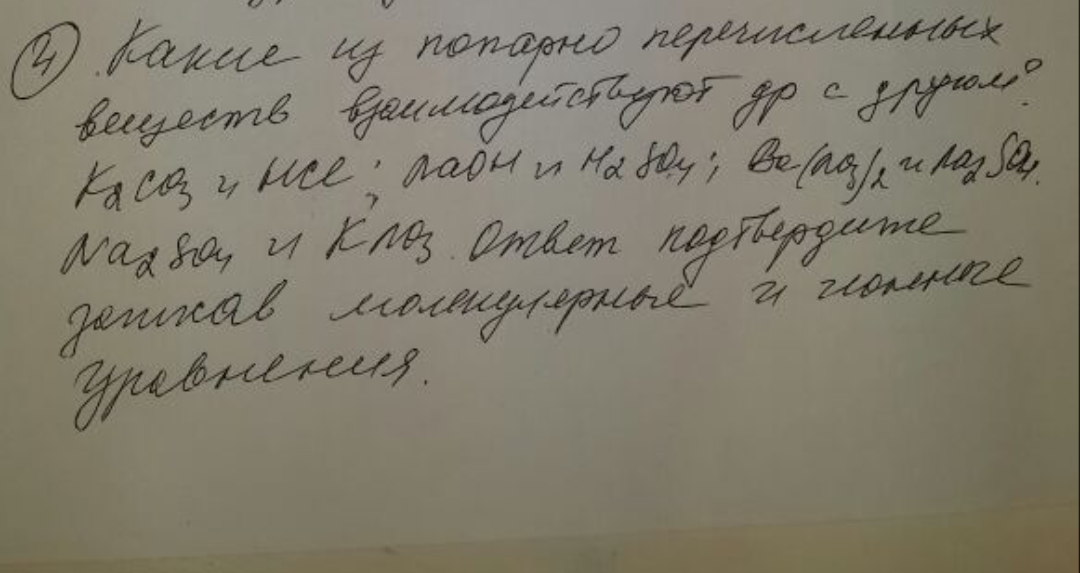 4). Какие из попарно перечисленных
веществ взаимодействуют др с другом?
K2CO3 и HCl; NaOH и H2SO4; Ba(NO3)2 и Na2SO4.
Na2SO4 и KNO3. Ответ подтвердите
записав молекулярные и ионные
уравнения.